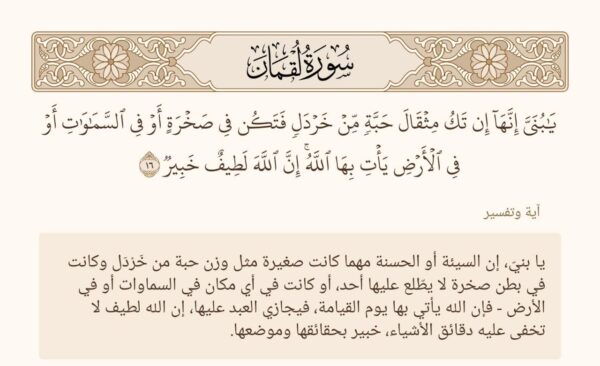 سُورَةُ لُقْمَان
يَـٰبُنَىَّ إِنَّهَآ إِن تَكُ مِثْقَالَ حَبَّةٍ مِّنْ خَرْدَلٍ فَتَكُن فِى صَخْرَةٍ أَوْ فِى ٱلسَّمَـٰوَٰتِ أَوْ
فِى ٱلْأَرْضِ يَأْتِ بِهَا ٱللَّهُ ۚ إِنَّ ٱللَّهَ لَطِيفٌ خَبِيرٌ ١٦
آية وتفسير
يا بنيّ، إن السيئة أو الحسنة مهما كانت صغيرة مثل وزن حبة من خَردَل وكانت
في بطن صخرة لا يطّلع عليها أحد، أو كانت في أي مكان في السماوات أو في
الأرض - فإن الله يأتي بها يوم القيامة، فيجازي العبد عليها، إن الله لطيف لا
تخفى عليه دقائق الأشياء، خبير بحقائقها وموضعها.